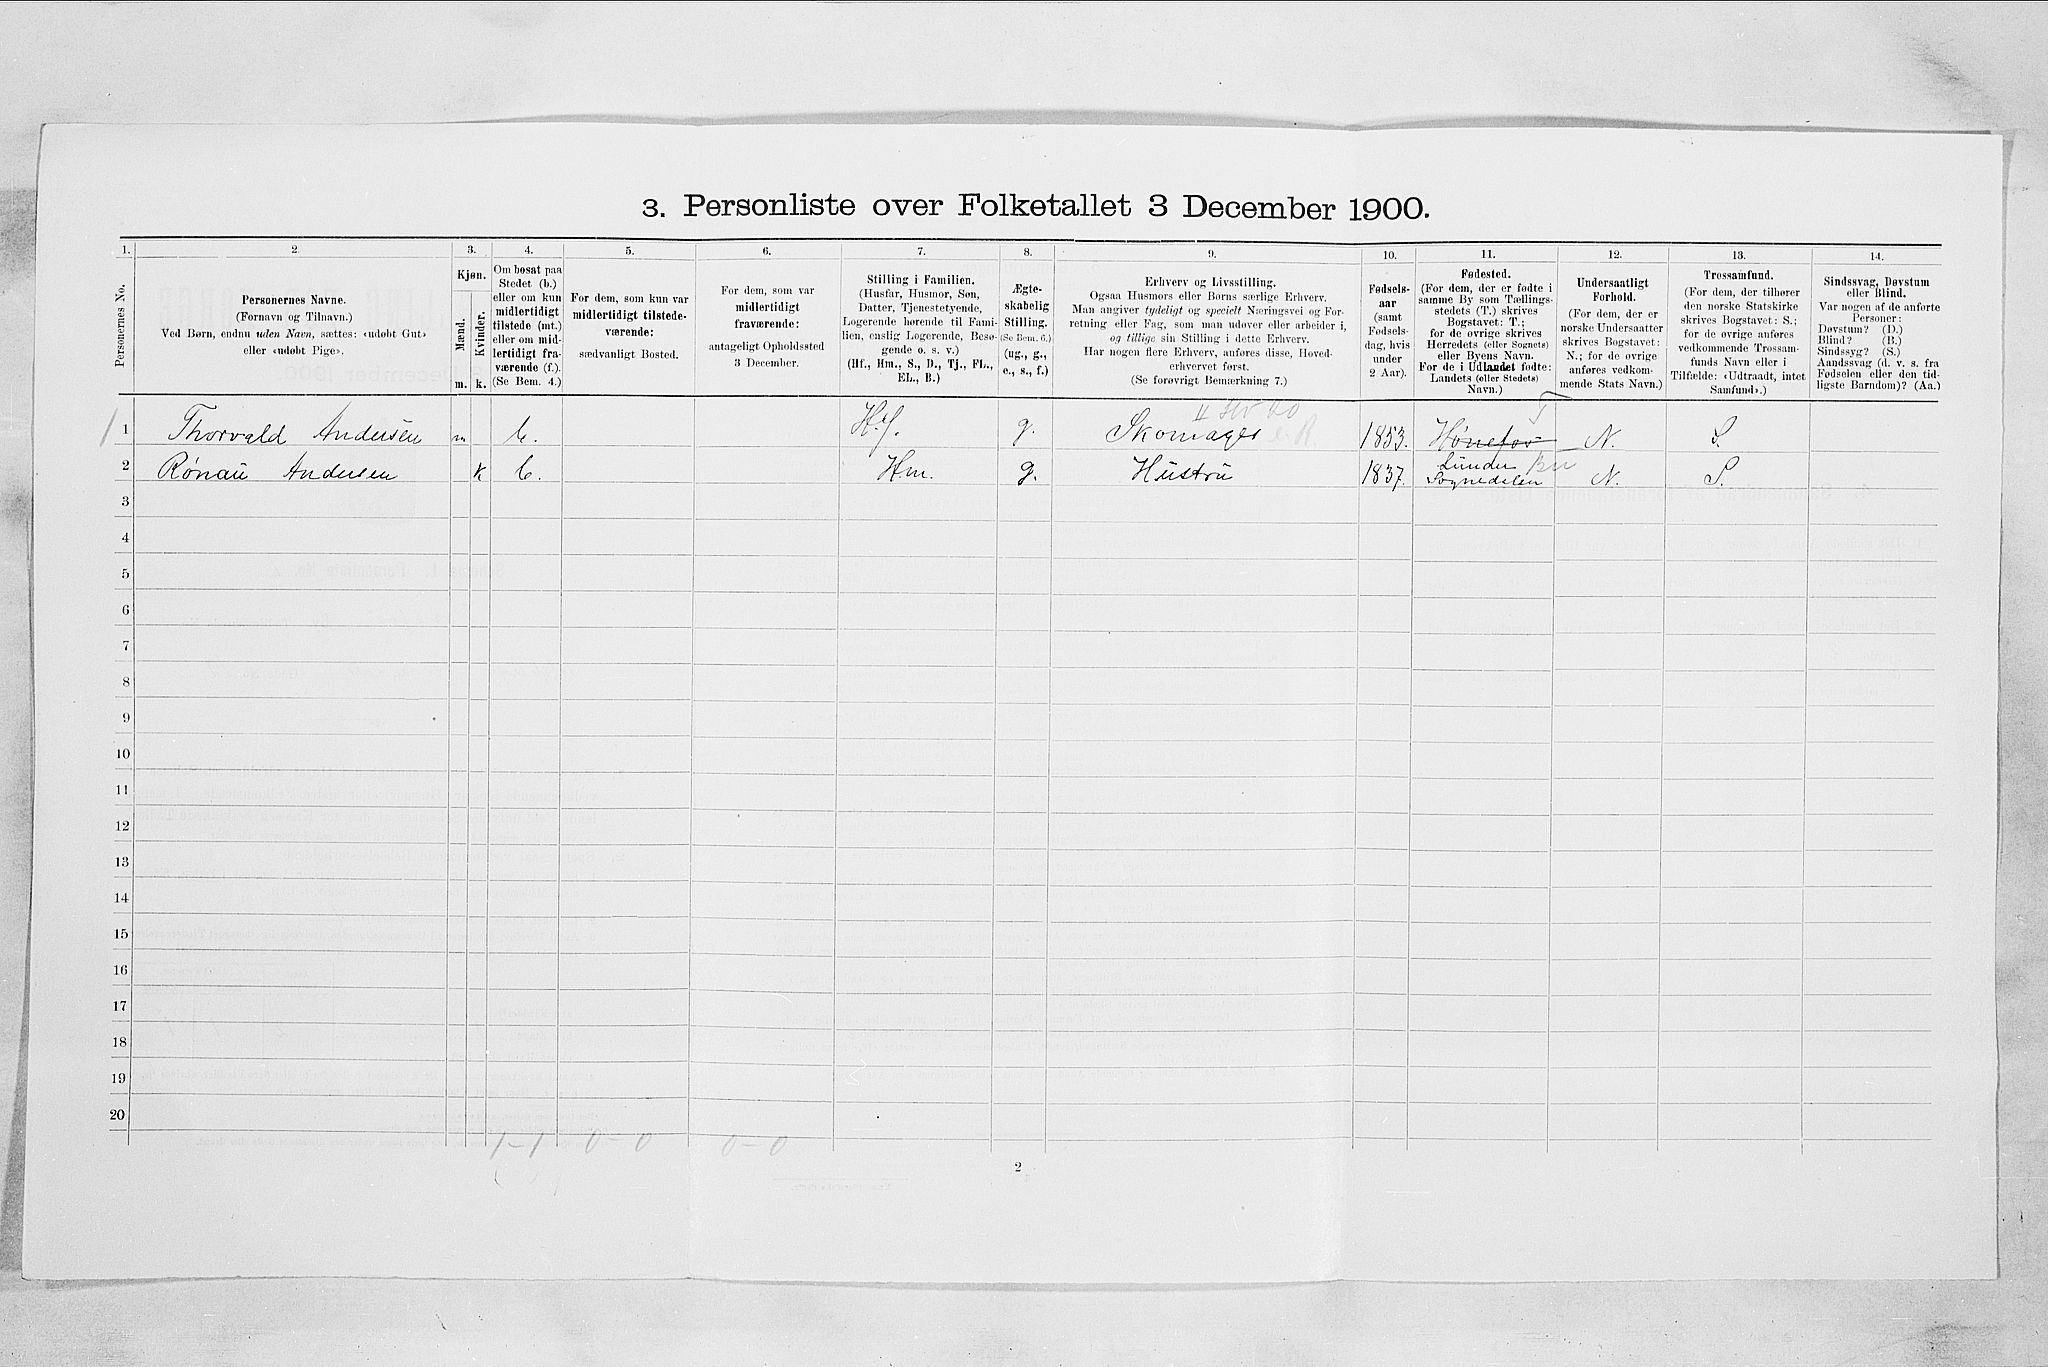 3. Personliste over Folketallet 3 December 1900.
1. 2. 3. 4. 5. 6. 7. 8. 9. 10. 11. 12. 13. 14.
Personernes No.
Personernes Navne.
(Fornavn og Tilnavn.)
Ved Børn, endnu uden Navn, sættes: «udøbt Gut»
eller «udøbt Pige».
Kjøn.
Mænd.
Kvinder.
m. k.
Om bosat paa
Stedet (b.)
eller om kun
midlertidigt
tilstede (mt.)
eller om mid-
lertidigt fra-
værende (f.).
(Se Bem. 4.)
For dem, som kun var
midlertidigt tilstede-
værende:
sædvanligt Bosted.
For dem, som var
midlertidigt
fraværende:
antageligt Opholdssted
3 December.
Stilling i Familien.
(Husfar, Husmor, Søn,
Datter, Tjenestetyende,
Logerende hørende til Fami-
lien, enslig Logerende, Besø-
gende o. s. v.)
(Hf., Hm., S., D., Tj., FL.,
EL., B.)
Ægte-
skabelig
Stilling.
(Se Bem. 6.)
(ug., g.,
e., s., f.)
Erhverv og Livsstilling.
Ogsaa Husmors eller Børns særlige Erhverv.
Man angiver tydeligt og specielt Næringsvei og For-
retning eller Fag, som man udøver eller arbeider i,
og tillige sin Stilling i dette Erhverv.
Har nogen flere Erhverv, anføres disse, Hoved-
erhvervet først.
(Se forøvrigt Bemærkning 7.)
Fødsels-
aar
(samt
Fødsels-
dag, hvis
under
2 Aar).
Fødested.
(For dem, der er fødte i
samme By som Tællings-
stedets (T.) skrives
Bogstavet: T.;
for de øvrige skrives
Herredets (eller Sognets)
eller Byens Navn.
For de i Udlandet fødte:
Landets (eller Stedets)
Navn.)
Undersaatligt
Forhold.
(For dem, der er
norske Undersaatter
skrives Bogstavet:
N.; for de øvrige
anføres vedkom-
mende Stats Navn.)
Trossamfund.
(For dem, der tilhører
den norske Statskirke
skrives Bogstavet: S.;
for de øvrige anføres
vedkommende Trossam-
funds Navn eller i
Tilfælde: «Udtraadt, intet
Samfund».)
Sindssvag, Døvstum
eller Blind.
Var nogen af de anførte
Personer:
Døvstum? (D.)
Blind? (B.)
Sindssyg? (S.)
Aandssvag (d. v. s. fra
Fødselen eller den tid-
ligste Barndom)? (Aa.)
T
1 Thorvald Andersen m b. Hf. g. Skomager 1853. Hønefos N. S.
2 Rønau Andersen k b. Hm. g. Hustru 1837. Lunder Bu Sognedalen N. S.
3
4
5
6
7
8
9
10
11
12
13
14
15
16
17
18
19
20
1-1 0-0 0-0
2